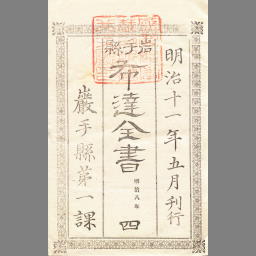 明治十一年五月刊行
岩手縣
布達全書
明治八年
四
巖手縣第一課